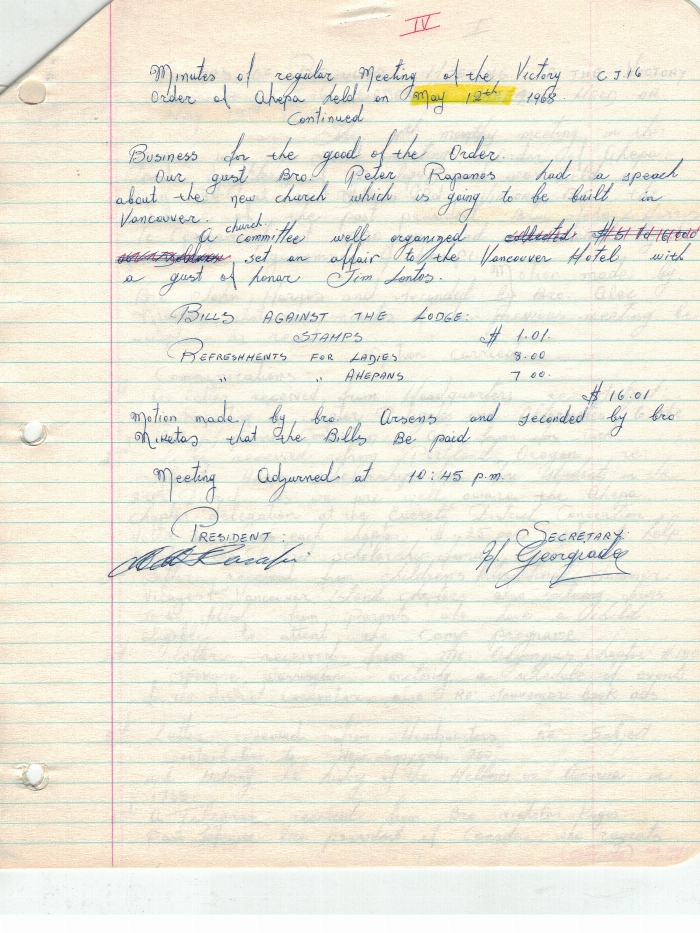 IV
Minutes of regular Meeting of the Victory C J 16
Order of Ahepa held on May 12th 1968.
Continued
Business for the good of the Order.
Our gust Bro. Peter Rapanos had a speach
about the new church which is going to be built in
Vancouver.
A church committee well organized collected
set an affair to the Vancouver Hotel, with
a gust of honor Jim Lontos.
BILLS AGAINST THE LODGE:
STAMPS $ 1.01.
REFRESHMENTS FOR LADIES 8.00
" " AHEPANS 7 00.
$ 16.01
Motion made by bro Arsens and seconded by bro
Miketas that the Bills Be paid
Meeting Adjurned at 10:45 p.m.
PRESIDENT: SECRETARY:
H Georgrades